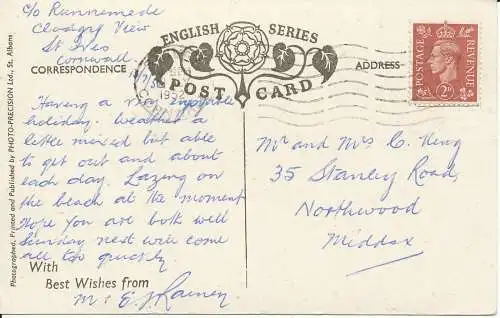 c/o Runnemede
View
St Ives
Cornwall.
ENGLISH SERIES
POST CARD
CORRESPONDENCE
ADDRESS
POSTAGE
REVENUE
2D
Having a very enjoyable
holiday. Weather a
little mixed but able
to get out and about
each day. Lazing on
the beach at the moment
Hope you are both well
Sunday next will come
all too quickly.
With
Best Wishes from
Mr and Mrs C.
35 Stanley Road,
Northwood
Middsx
Photographed, Printed and Published by PHOTO-PRECISION Ltd., St. Albans